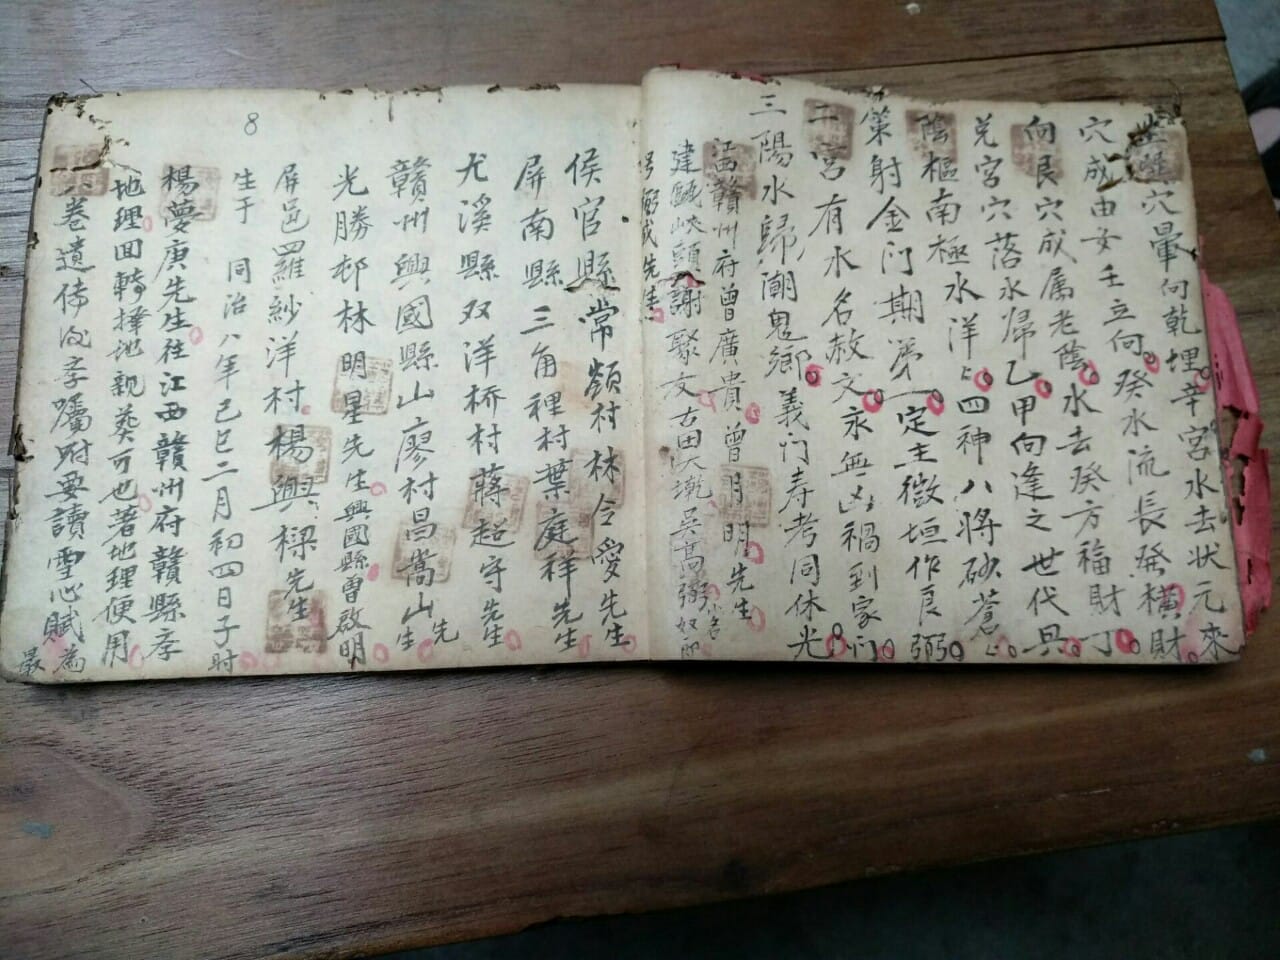 穴暈向乾埋辛宮水去狀元來
穴成由女壬立向癸水流長發橫財
向艮穴成属老陰水去癸方福財丁
兌宮穴落水歸乙甲向逢之世代興
陰樞南極水洋上四神八將砂蒼上
策射金门期第一定主微垣作良弼
二宮有水名赦文永無凶禍到家门
三陽水歸潮鬼鄉義门寿考同休光
江西贛州府曾廣貴曾月明先生
建甌峽頭謝聚文古田大墘吳高弼小名奴郎
弼成先生
侯官縣常嶺村林令愛先生
屏南縣三角裡村葉庭祥先生
尤溪縣双洋桥村蔣超守先生
贛州興國縣山廖村昌嵩山先生
光勝邨林明星先生興國縣曾啟明
屏邑四維紗洋村楊興樑先生
8
生于同治八年己巳二月初四日子时
楊夢庚先生往江西贛州府贛縣孝
地理回轉擇地親葵可也著地理便用
卷遺傳後孝囑咐要讀雪心賦為
最